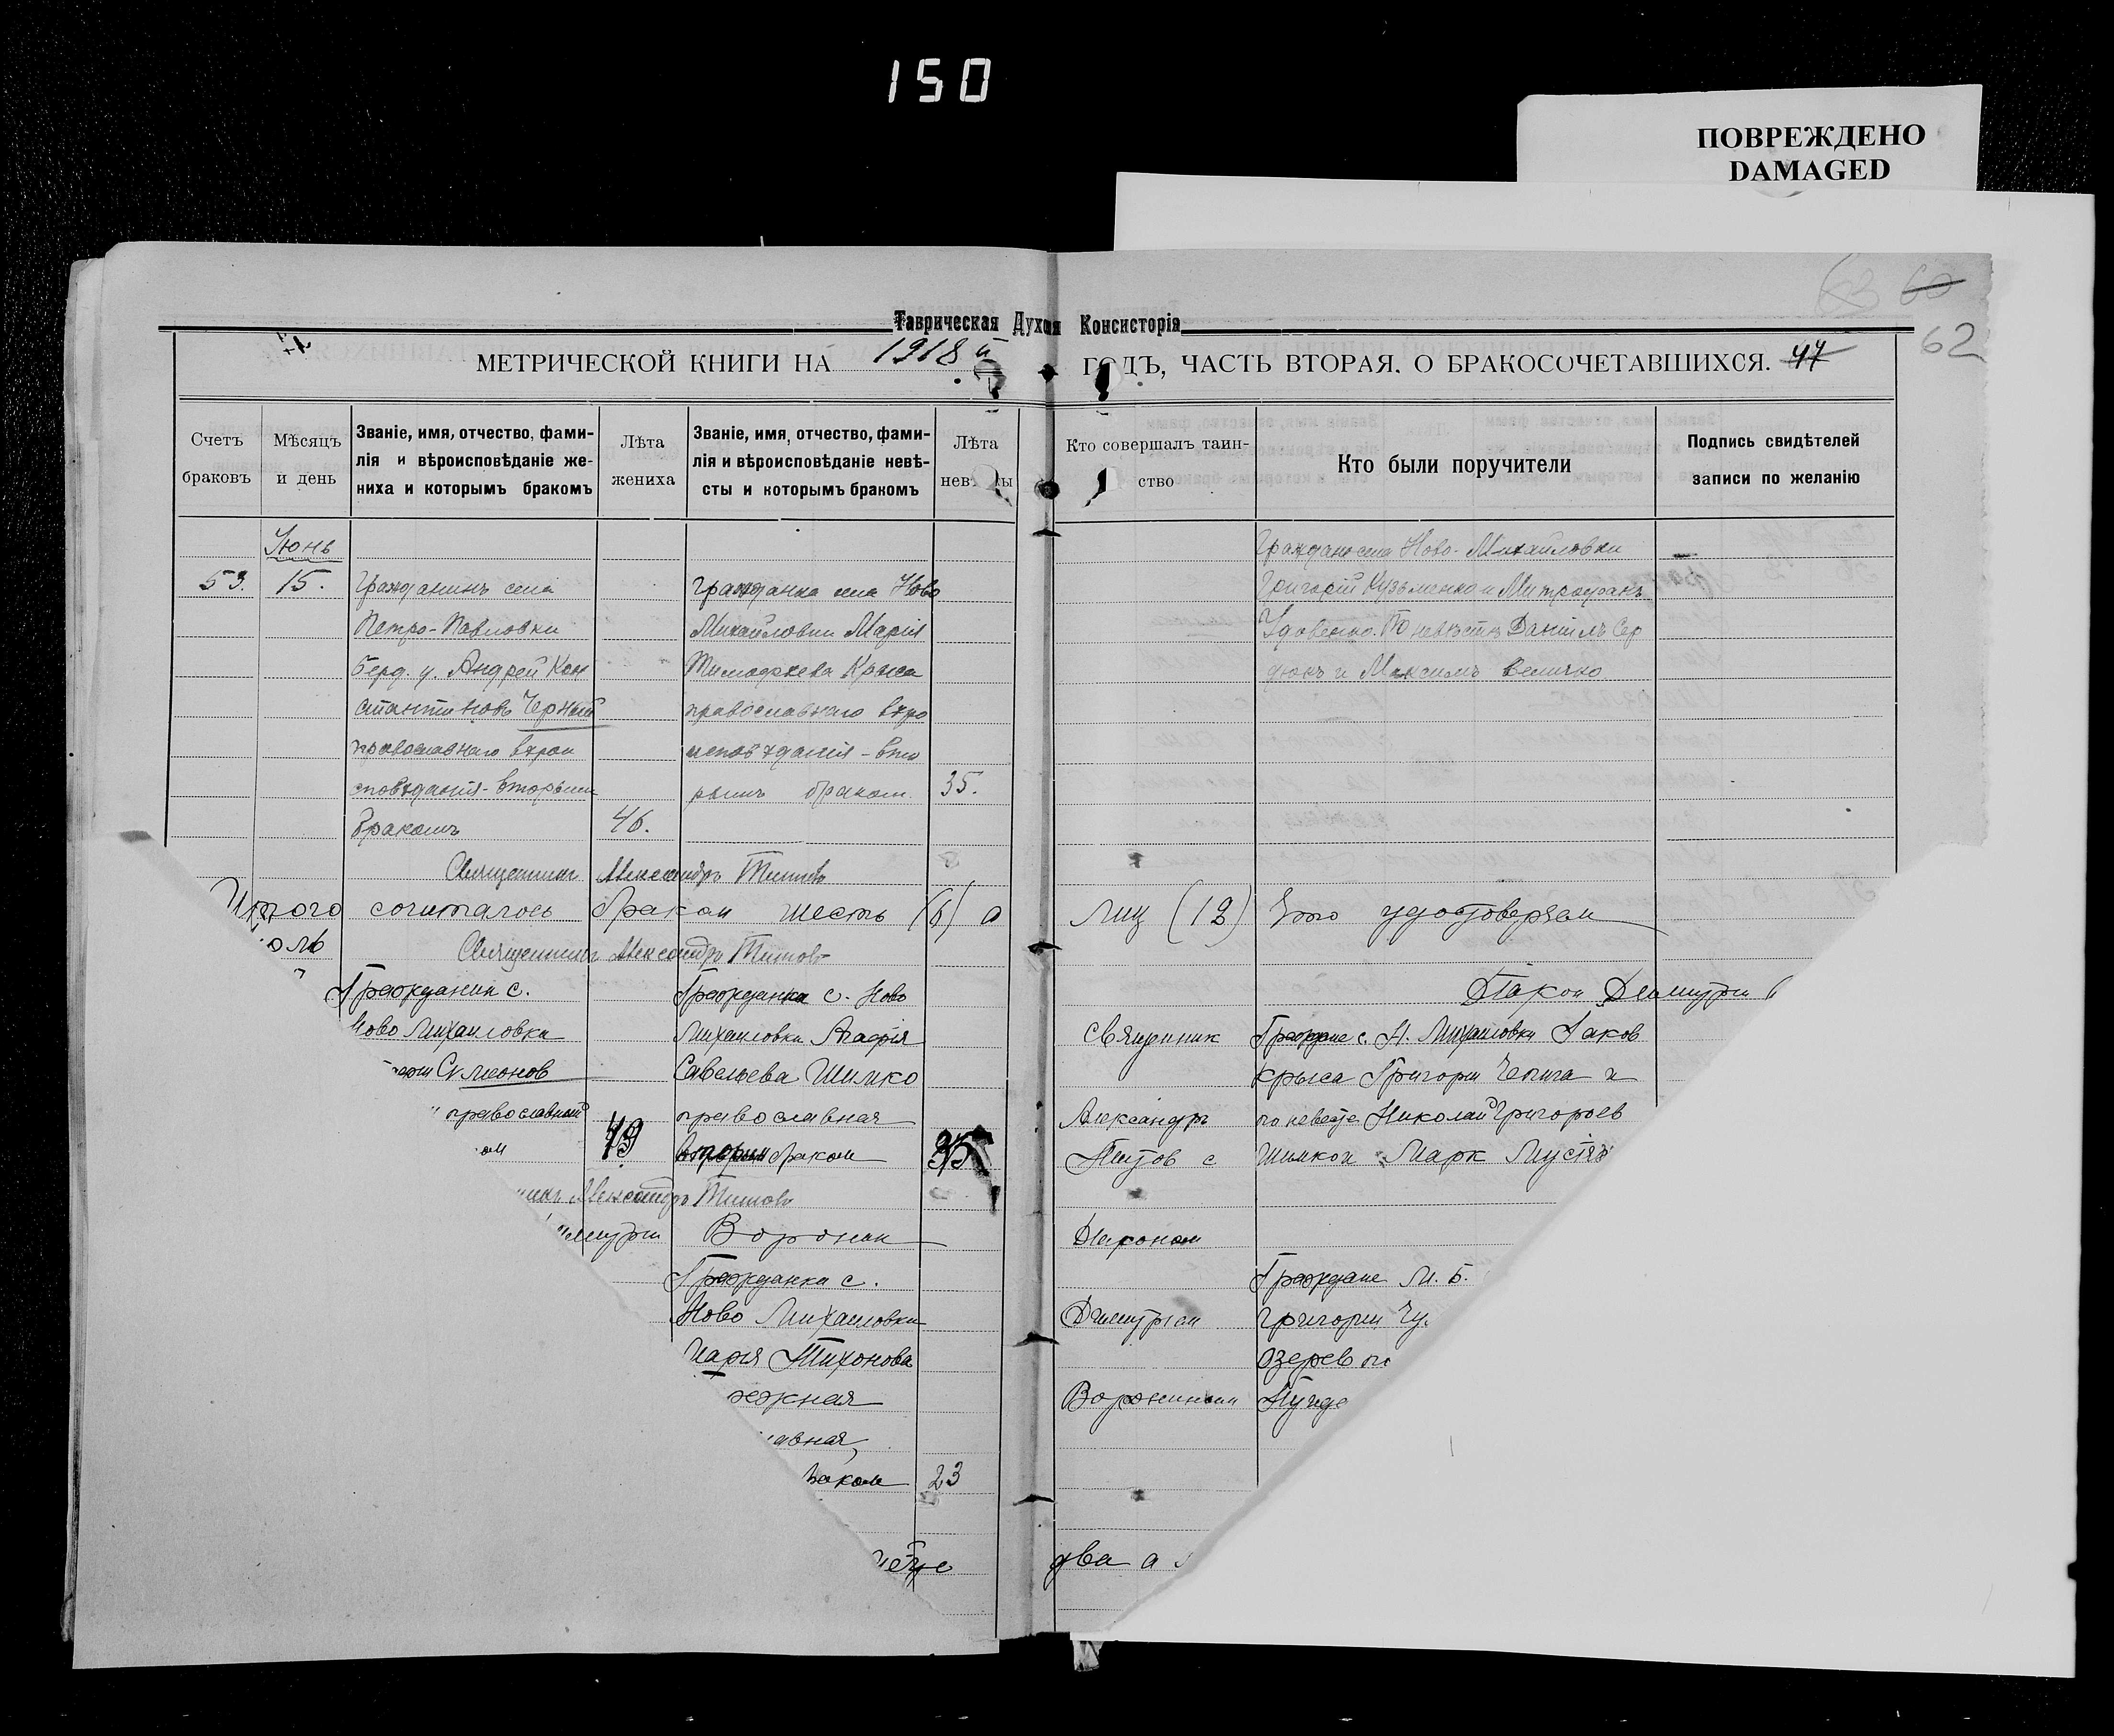 150
ПОВРЕЖДЕНО
DAMAGED
62
Таврическая Духов Консисторія
МЕТРИЧЕСКОЙ КНИГИ НА 1918 й ГОДЪ, ЧАСТЬ ВТОРАЯ, О БРАКОСОЧЕТАВШИХСЯ. 47
Счетъ браковъ
Мѣсяцъ и день
Званіе, имя, отчество, фами-
лія и вѣроисповѣданіе же-
ниха и которымъ бракомъ
Лѣта жениха
Званіе, имя, отчество, фами-
лія и вѣроисповѣданіе невѣ-
сты и которымъ бракомъ
Лѣта нев ы
Кто совершалъ таин-
ство
Кто были поручители
Подпись свидѣтелей
записи по желанію
Іюнь
53. 15.
Гражданинъ села
Петро-Павловки
Берд. у. Андрей Кон
стантиновъ Черный
православнаго вѣрои
сповѣданія - вторымъ
бракомъ
46.
Гражданка села Ново
Михайловки Марія
Тимофѣева Крыса
православнаго вѣро
исповѣданія - вто
рымъ бракомъ.
35.
Граждане села Ново-Михайловки
Григорій Кузьменко и Митрофанъ
Удовенко. По невѣстѣ Даніилъ Сер
дюкъ и Максимъ Величко
Священникъ Александръ Титовъ
Итого сочиталось браком шесть (6) а лиц (12) Это удостоверяем
оль
Священникъ Александръ Титовъ
Гражданин с.
Ново Михайловки
Симеонов
православный
ом
49
Гражданка с. Ново
Михайловки Агафія
Савельева Шимко
православная
Вторым браком
35
Священник
Александръ
Титов с
Диаконом
Димитрием
Ворониным
Граждане с. Н. Михайловки Іаков
Крыса Григорий Чепига и
по невесте Николай Григорьев
Шимко и Марк
Александръ Титовъ
Воронин
Гражданка с.
Ново Михайловки
Тихонова
жная
авная,
раком
23
Граждане М. Б.
Григорий Чу
Озерев по
два а